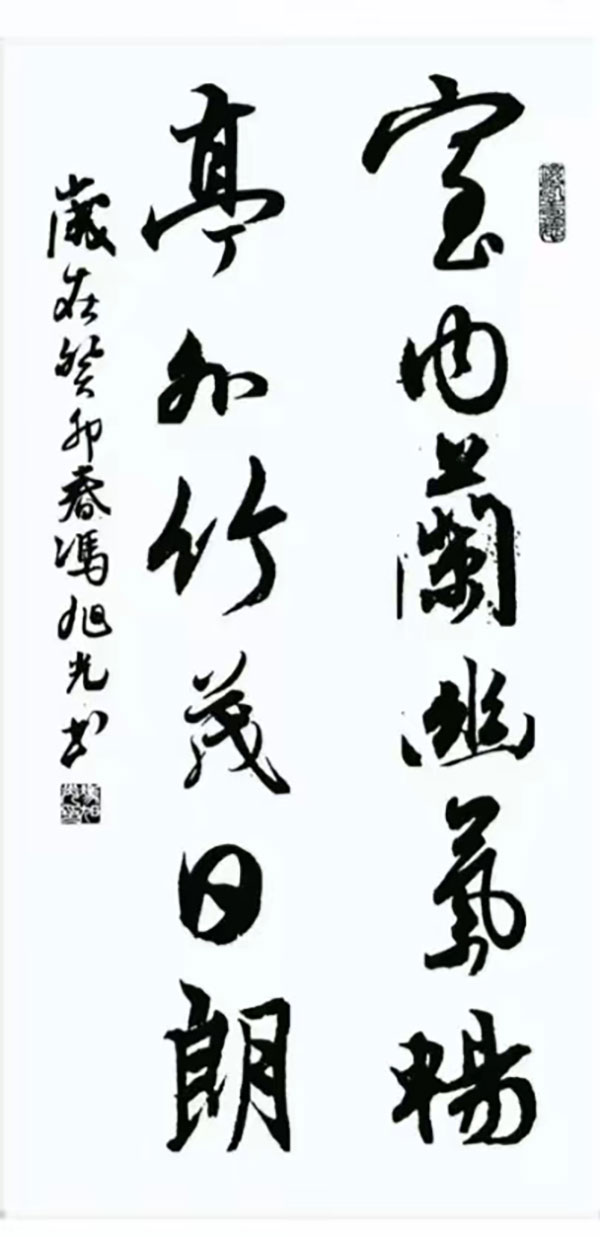 室内蘭幽氣暢
亭外竹茂日朗
歲在癸卯春馮旭光书